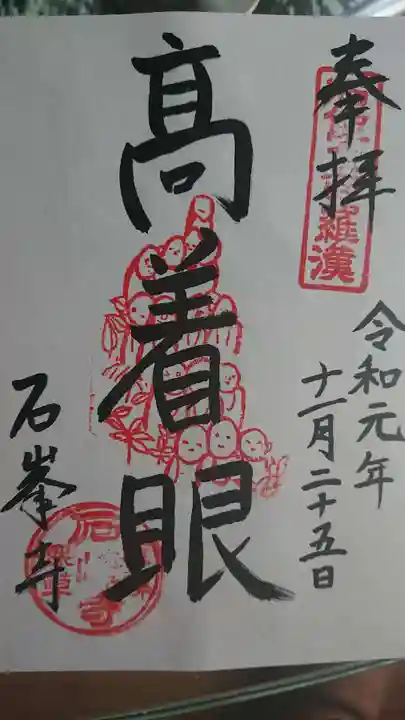 奉拝
羅漢
令和元年
十一月二十五日
髙着眼
石峯寺